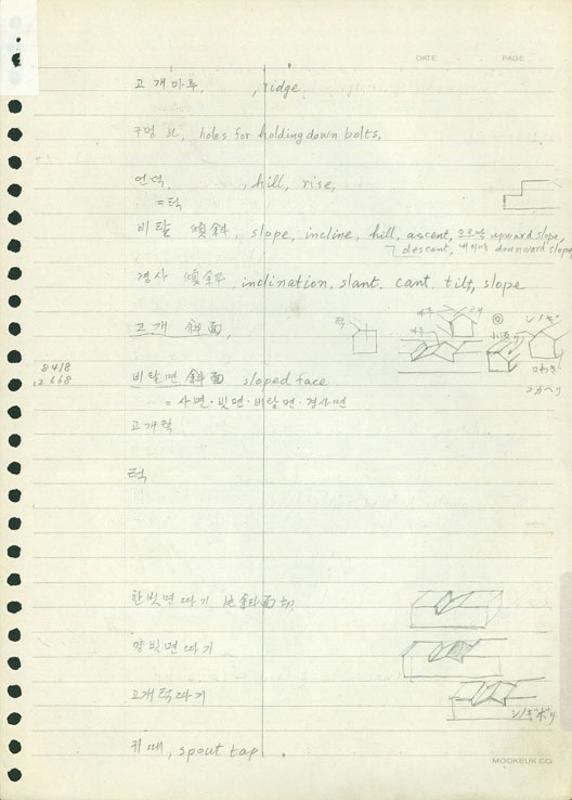 DATE . . PAGE
고개마루, , ridge
구멍 , holes for holding down bolts,
언덕, , hill, rise,
=턱
비탈 傾斜, slope, incline, hill, ascent, 오르막 upward slope,
descent, 내리막 downward slope
경사 傾斜, inclination, slant, cant, tilt, slope
고개 斜面,
턱
シノギ
8418
비탈면 斜面 sloped face
= 사면·빗면·비탈면·경사면
고개턱
턱
한빗면따기 斜面切
양빗면따기
고개턱따기
シノギボリ
귀때, spout tap
MOOKEUK CO